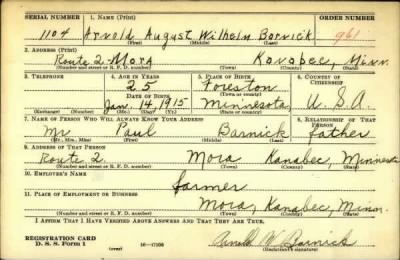 SERIAL NUMBER 1. NAME (Print) ORDER NUMBER
1104 Arnold August Wilhelm Barnick 961
(First) (Middle) (Last)
2. ADDRESS (Print)
Route 2-Mora Kanabec, Minn.
(Number and street or R. F. D. number) (Town) (County) (State)
3. TELEPHONE 4. AGE IN YEARS 5. PLACE OF BIRTH 6. COUNTRY OF CITIZENSHIP
25 Foreston
DATE OF BIRTH (Town or county)
Jan. 14, 1915 Minnesota, U.S.A.
(Exchange) (Number) (Mo.) (Day) (Yr.) (State or country)
7. NAME OF PERSON WHO WILL ALWAYS KNOW YOUR ADDRESS 8. RELATIONSHIP OF THAT PERSON
Mr Paul Barnick father
(Mr., Mrs., Miss) (First) (Middle) (Last)
9. ADDRESS OF THAT PERSON
Route 2. Mora Kanabec, Minnesota
(Number and street or R. F. D. number) (Town) (County) (State)
10. EMPLOYER'S NAME
farmer
11. PLACE OF EMPLOYMENT OR BUSINESS
Mora, Kanabec, Minn.
(Number and street or R. F. D. number) (Town) (County) (State)
I AFFIRM THAT I HAVE VERIFIED ABOVE ANSWERS AND THAT THEY ARE TRUE.
REGISTRATION CARD
D. S. S. Form 1 (over) 16—17105 Arnold W Barnick
(Registrant's signature)